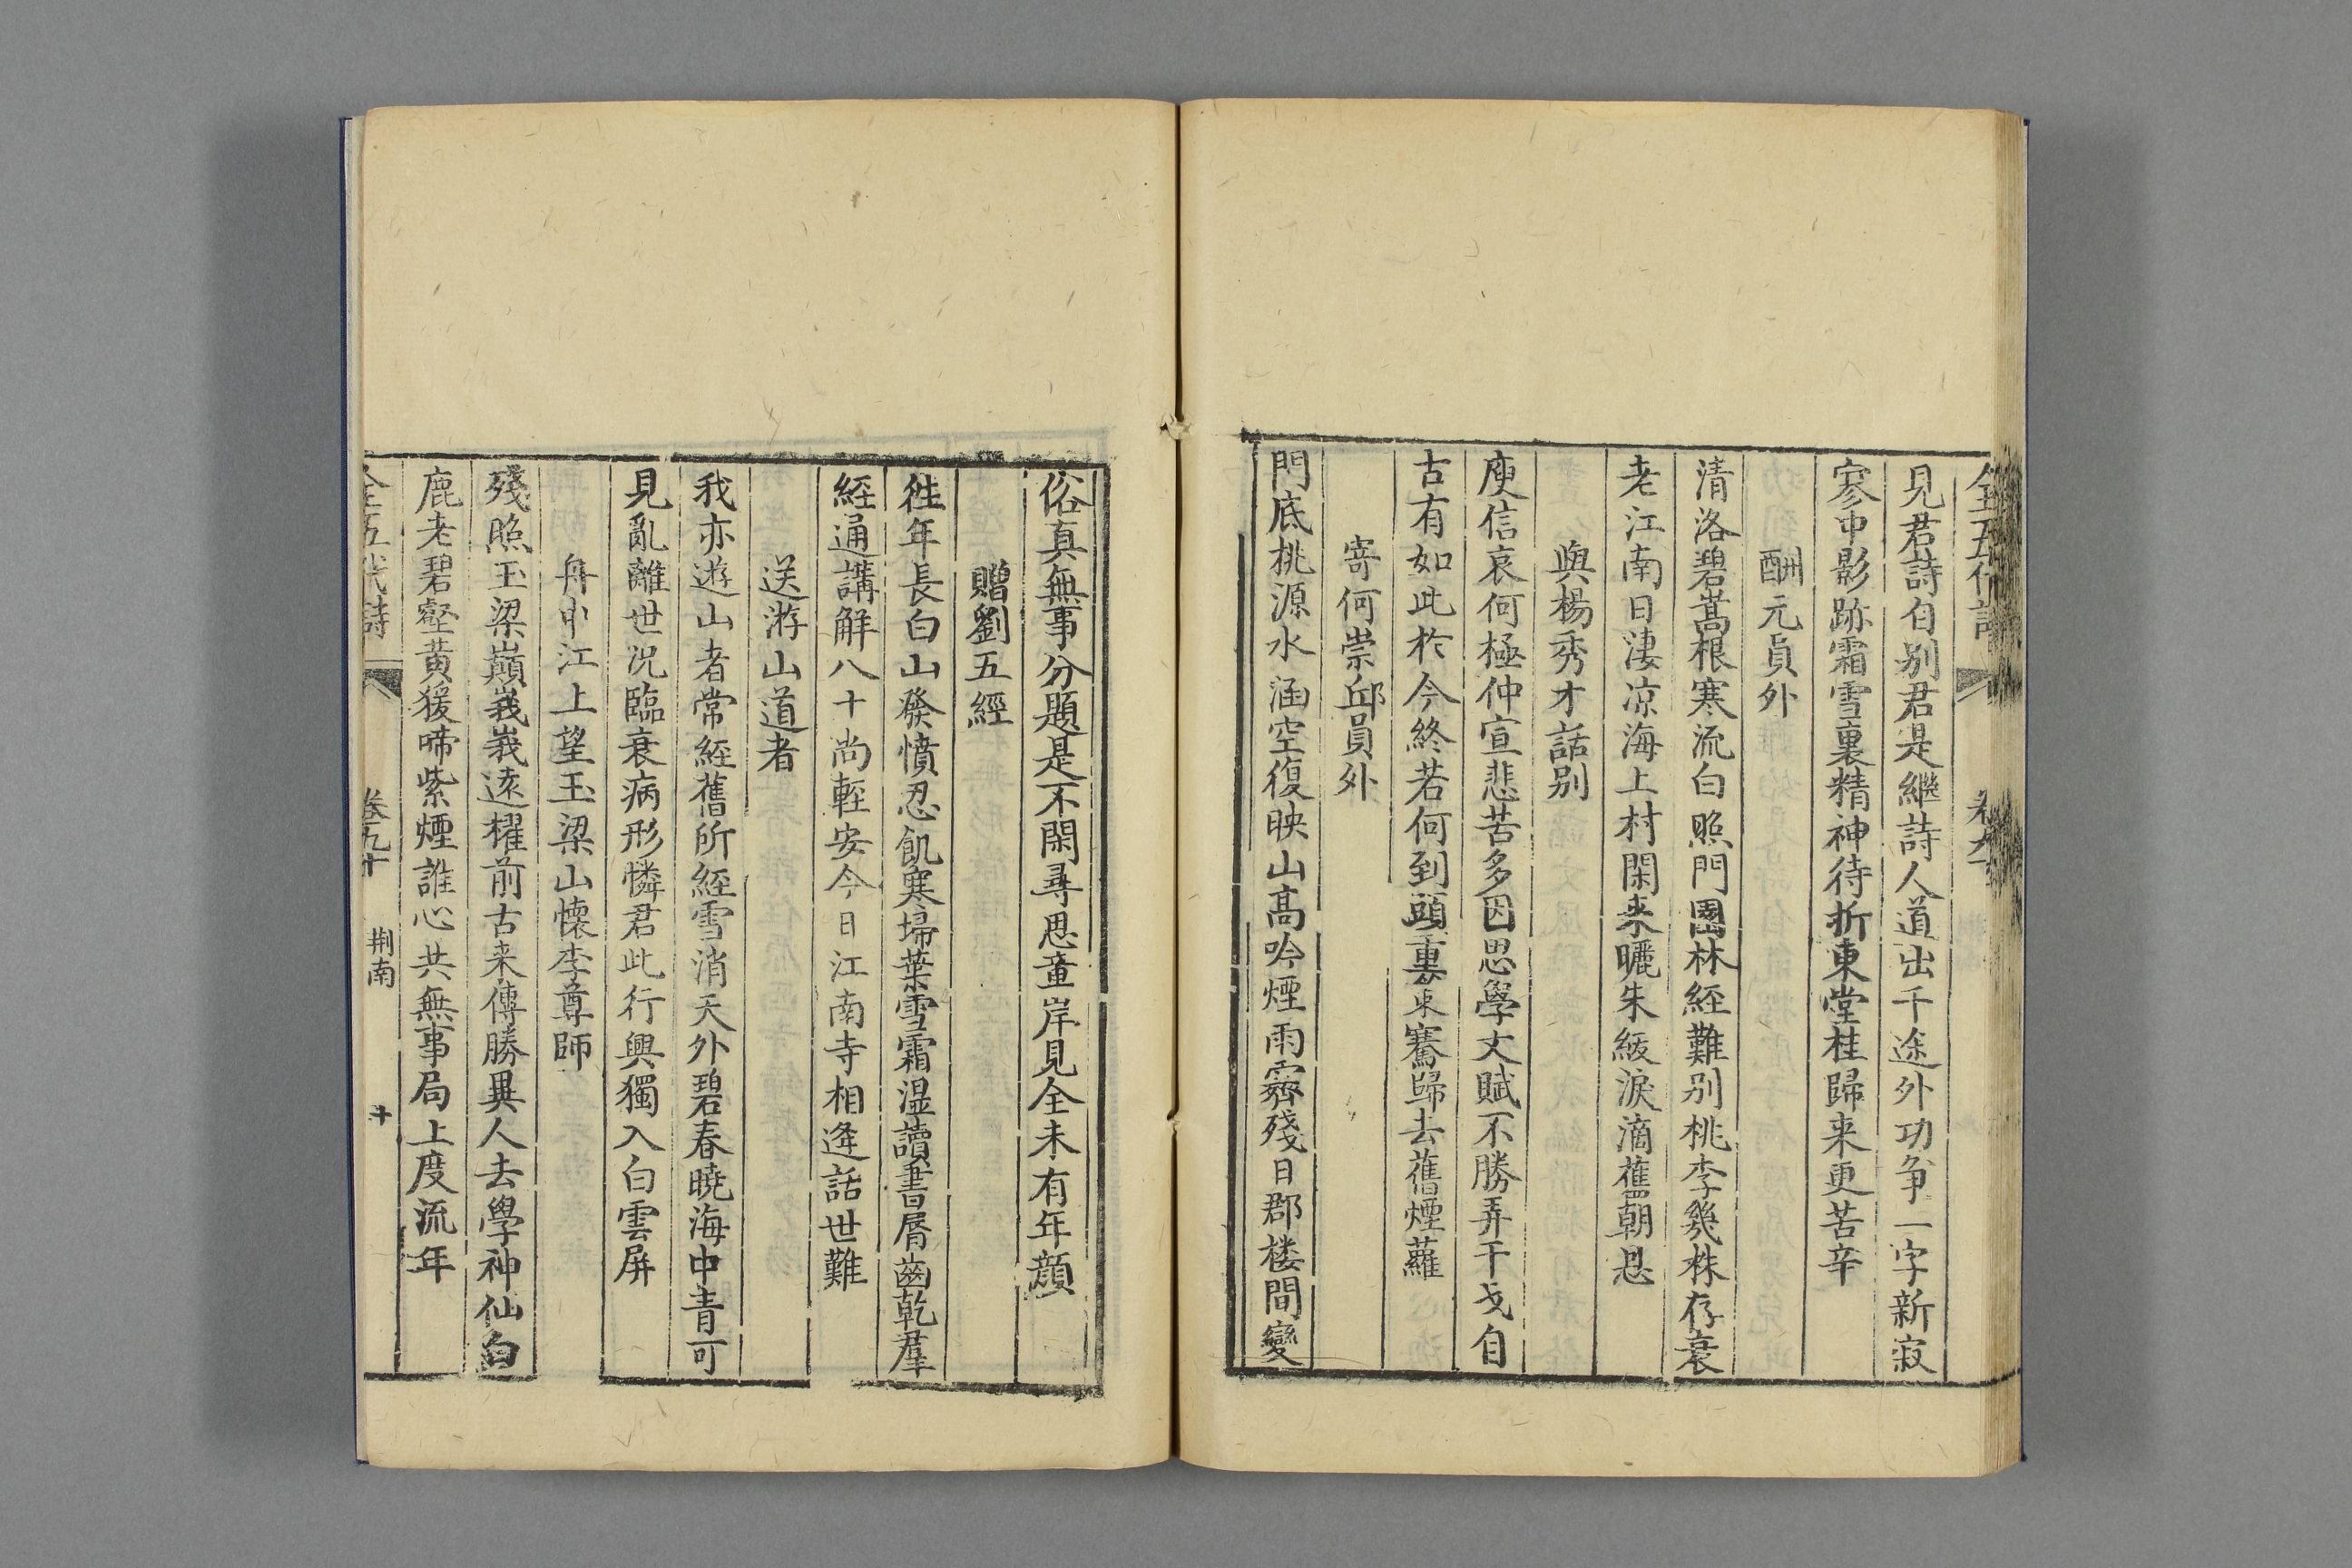 全五代詩
卷九
見君詩自别君是繼詩人道出千途外功争一字新寂
寥中影跡霜雪裏精神待折東堂桂歸来更苦辛
酬元員外
清洛碧嵩根寒流白照門園林經難别桃李幾株存衰
老江南日凄凉海上村閑来曬朱紱淚滴舊朝恩
與楊秀才話别
庾信哀何極仲宣悲苦多因思學文賦不勝弄干戈自
古有如此於今終若何到頭重策蹇歸去舊煙蘿
寄何崇邱員外
門底桃源水涵空復映山高吟煙雨霽殘日郡楼間變
俗真無事分題是不閑尋思童岸見全未有年顔
贈劉五經
往年長白山發憤忍飢寒埽葉雪霜湿讀書脣齒乾羣
經通講解八十尚輕安今日江南寺相逢話世難
送游山道者
我亦遊山者常經舊所經雪消天外碧春曉海中青可
見亂離世况臨衰病形憐君此行興獨入白雲屏
舟中江上望玉梁山懷李尊師
殘照玉梁巔峩峩遠櫂前古来傳勝異人去學神仙白
鹿老碧壑黄猨啼紫煙誰心共無事局上度流年
全五代詩
卷九十
荆南
十